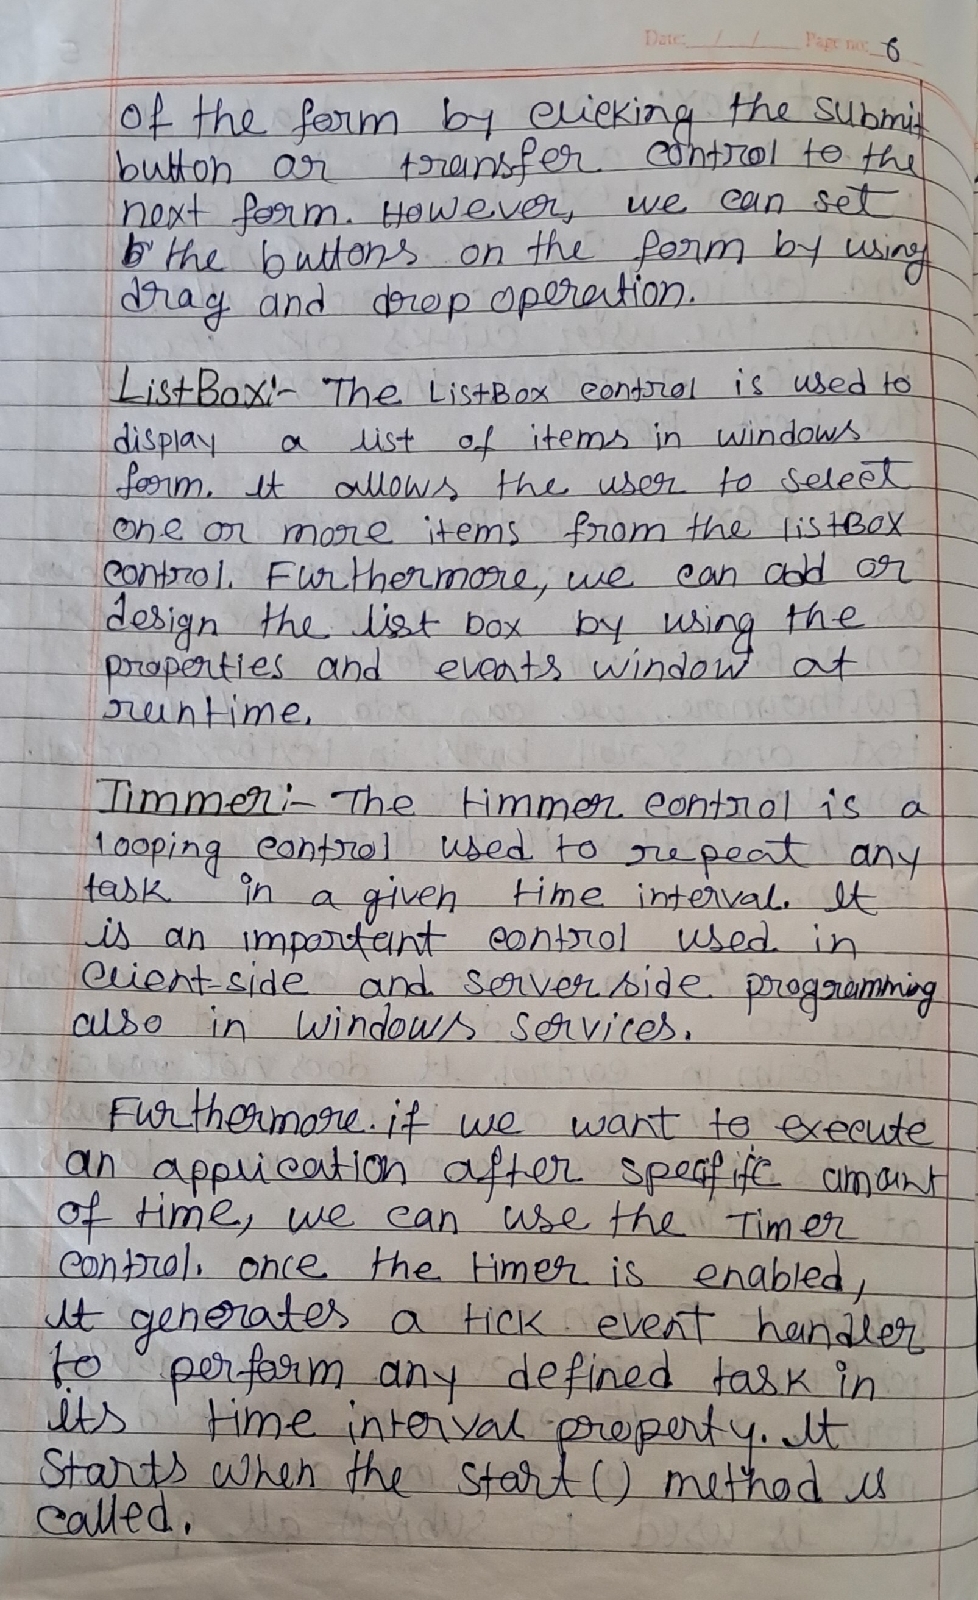 Date: / / Page no: 6
of the form by clicking the submit
button or transfer control to the
next form. However, we can set
b the buttons on the form by using
drag and drop operation.
ListBox:- The ListBox control is used to
display a list of items in windows
form. It allows the user to select
one or more items from the listBox
control. Furthermore, we can add or
design the list box by using the
properties and events window at
runtime.
Timmer:- The timmer control is a
looping control used to repeat any
task in a given time interval. It
is an important control used in
Client-side and Server side programming
also in Windows Services.
Furthermore. if we want to execute
an application after specific amount
of time, we can use the Timer
control. once the timer is enabled,
it generates a tick event handler
to perform any defined task in
its time interval property. It
Starts when the start() method is
called.